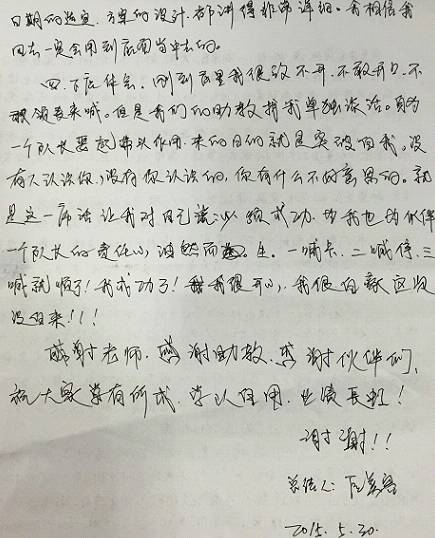 日期的选定、方案的设计、都讲得非常详细。我相信我
回去一定会用到店面当中去的。
四、下店体会、刚到店里我很放不开、不敢开口、不
敢领喜来喊。但是我们的助教找我单独谈话。身为
一个队长要起带头作用、来的目的就是突破自我。没
有人认识你、没有你认识的、你有什么不好意思的。就
是这一席话让我对自己说必须成功、为我也为伙伴
一个队长的责任心油然而生。一喊卡、二喊停、三
喊就顺了！我成功了！我很开心、我很自豪这次
没白来！！！
感谢老师、感谢助教、感谢伙伴们、
祝大家学有所成、学以致用、业绩长虹！
谢谢！！
总结人：
2015.5.30.